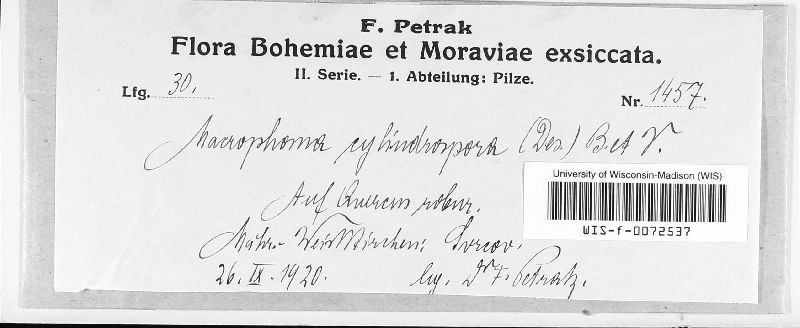 F. Petrak
Flora Bohemiae et Moraviae exsiccata.
II. Serie. — 1. Abteilung: Pilze.
Lfg. 30.
Nr. 1457.
Macrophoma cylindrospora (Des.) B. et V.
University of Wisconsin-Madison (WIS)
WIS-f-0072537
Auf Quercus robur.
Mähr.-Weisskirchen:
26. IX. 1920. leg. Dr F. Petrak.